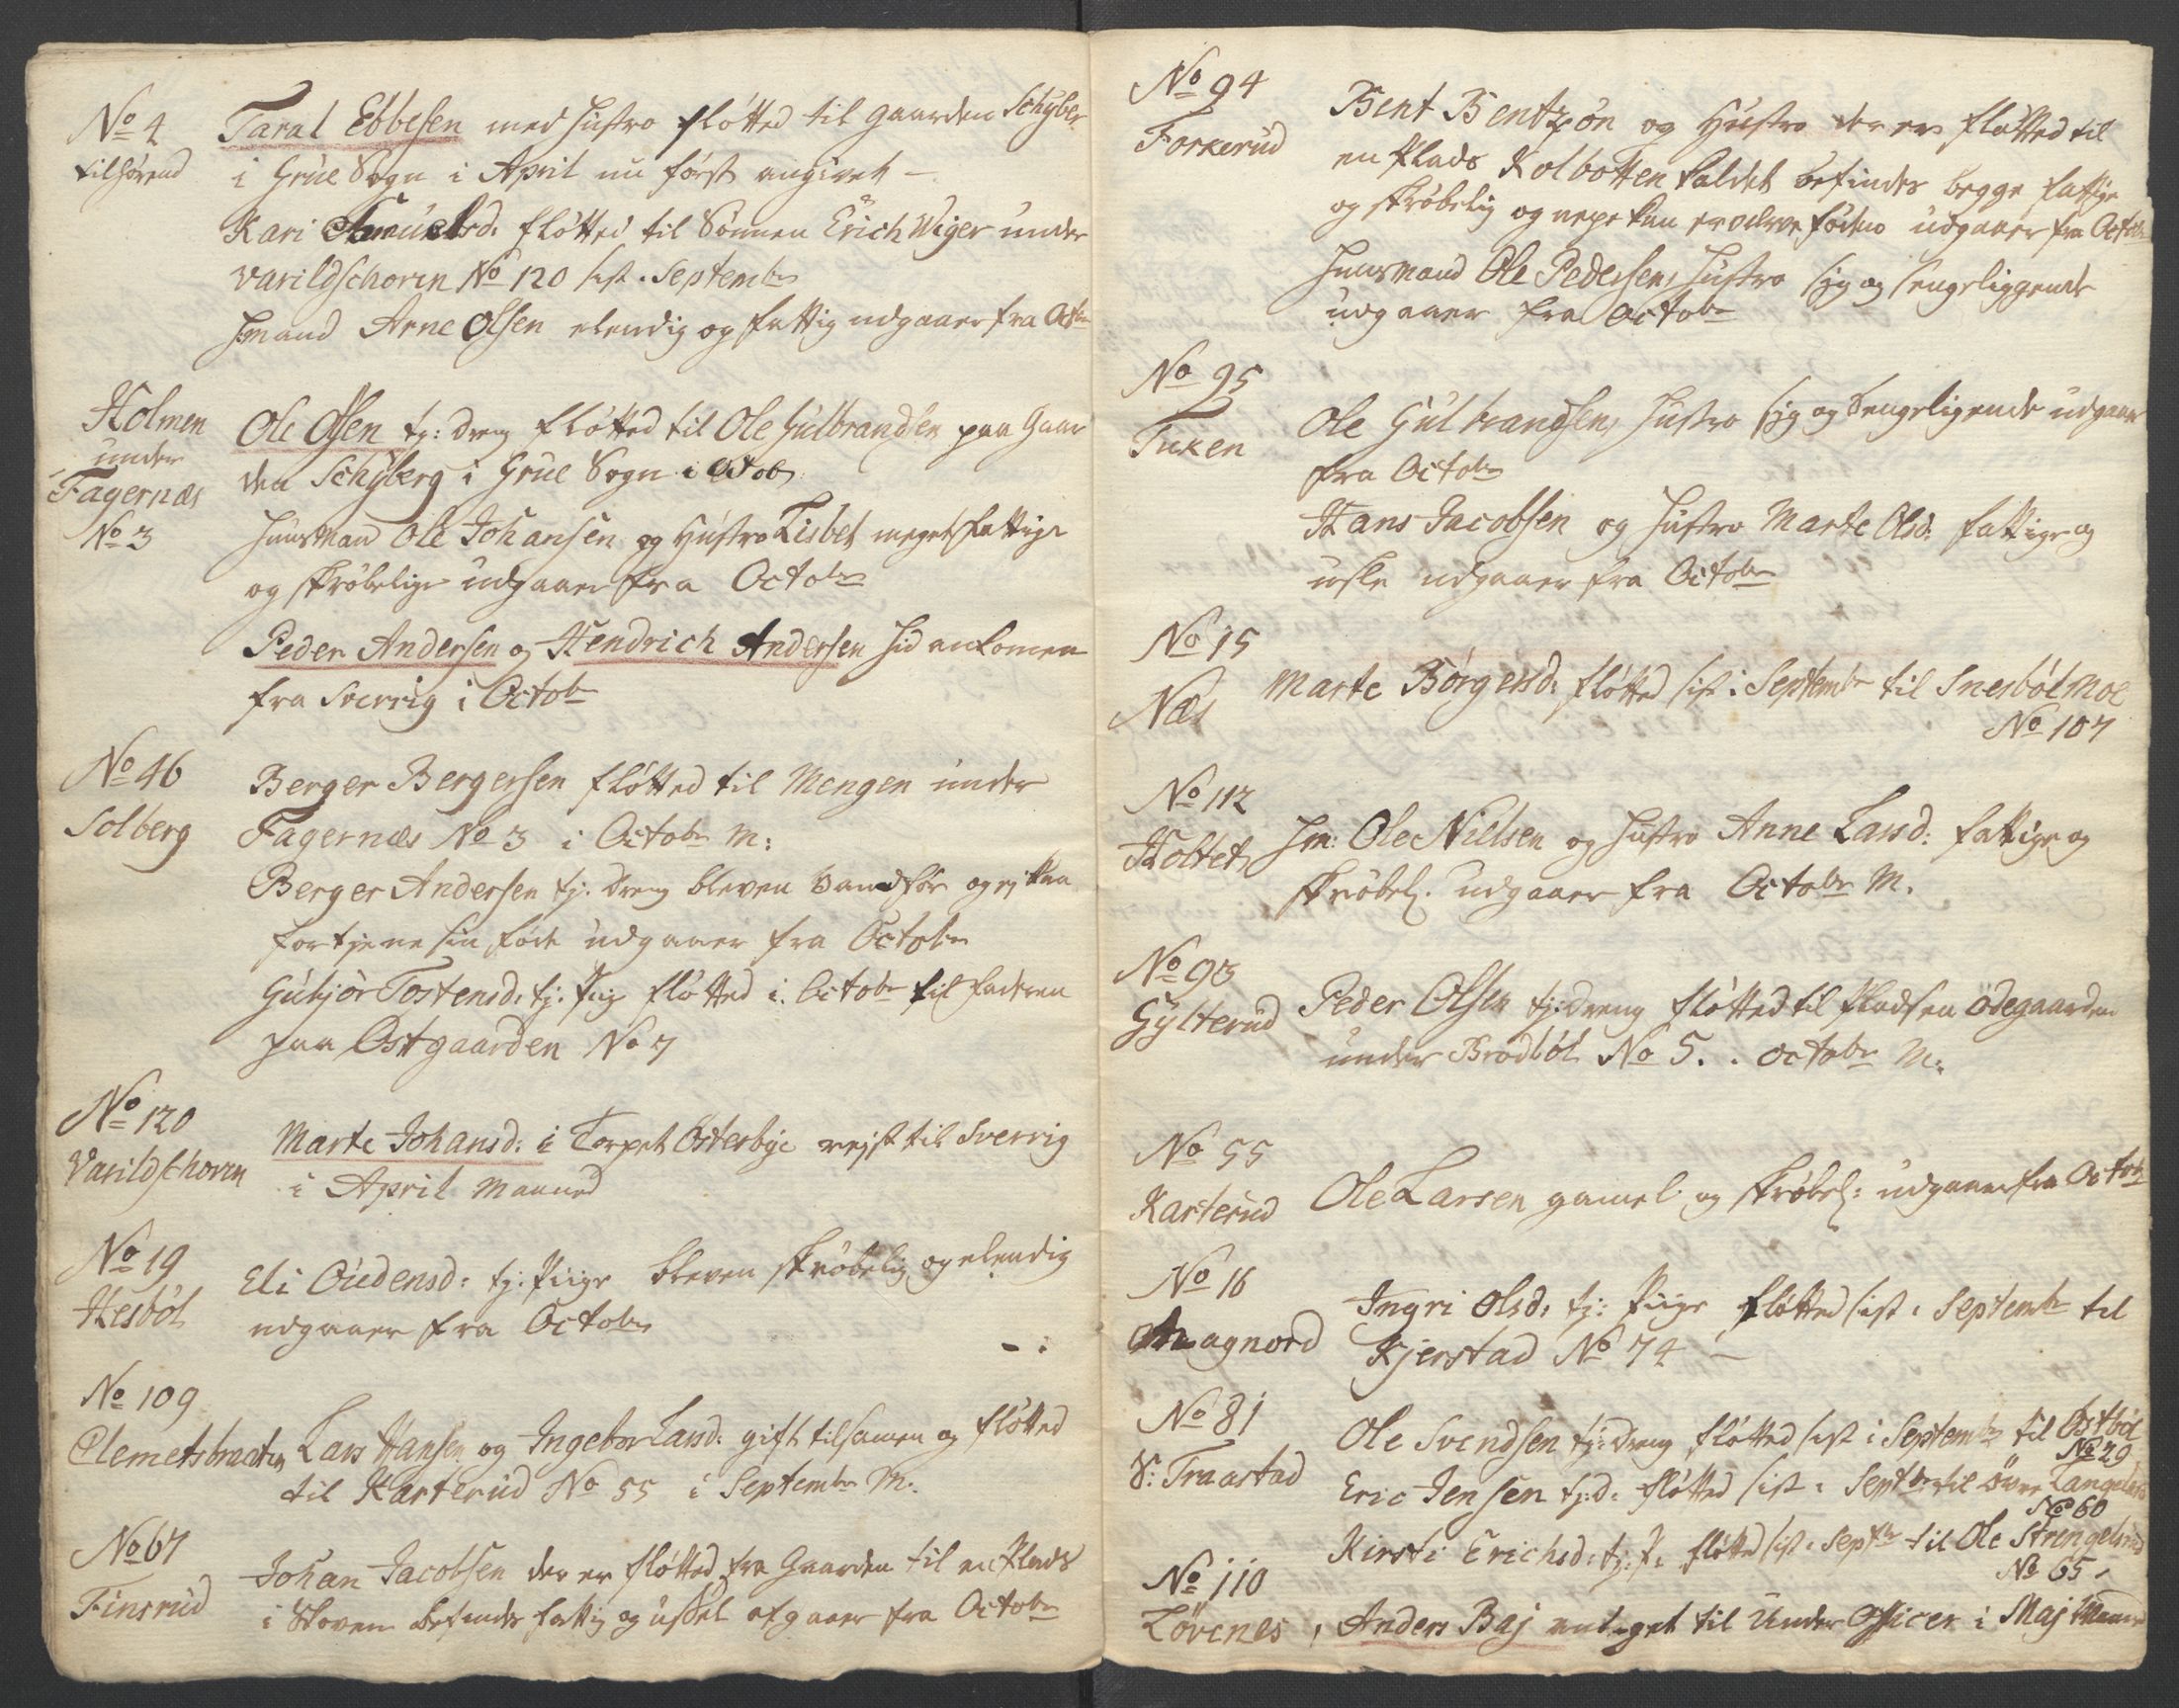 No 4
tilhørend
Taral Ebbesen med hustro fløtted til gaarden Schyber
i Grue Sogn i April nu først angivet –
Kari Amundsd: fløtted til Sønnen Erich Wiger under
Varildschoven No 120 sist. Septembr
Hmand Arne Olsen elendig og fattig udgaaer fra Octbr
Holmen
under
Fagernæs
No 3
Ole Olsen tj: dreng fløtted til Ole Gulbrandsen paa Gaar
den Schyberg i Grue Sogn i Octob
huusmand Ole Johansen og Hustro Lisbet meget fattige
og skrøbelige udgaaer fra Octobr
Peder Andersen og Hendrich Andersen hid ankomen
fra Sverrig i Octobr
No 46
Solberg
Berger Bergersen fløtted til Mengen under
Fagernæs No 3 i Octobr M:
Berger Andersen tj: dreng bleven vandfør og ej kan
fortjene sin føde udgaaer fra Octobr
Gunjør Tostensd: tj: Pig fløtted i Octobr til faderen
paa Ostgaarden No 7
No 120
Varildschoven
Marte Johansd: i Torpet Østerbye rejst til Sverrig
i April Maaned
No 19
Hesbøl
Eli Oudensd: tj: Piige bleven skrøbelig og elendig
udgaaer fra Octobr
No 109
Clemetsbraaten
Lars Hansen og Ingebor Larsd: gift tilsamen og fløtted
til Karterud No 55 i Septembr M:
No 67
Finsrud
Johan Jacobsen der er fløtted fra Gaarden til en Plads
i Skoven befindes fattig og ussel afgaaer fra Octobr
No 94
Forkerud
Bent Bentzøn og Hustro der er fløtted til
en Plads Kolbotten kaldet befindes begge fattige
og skrøbelig og neppe kan erverve føden udgaaer fra Octobr
Huusmand Ole Pedersens Hustro syg og sengeliggende
udgaaer fra Octobr
No 95
Tuken
Ole Gulbrandsens hustro syg og sengeligende udgaaer
fra Octobr
Hans Jacobsen og hustro Marte Olsd: fattige og
usle udgaaer fra Octobr
No 15
Næs
Marte Børgersd: fløtted sist i Septembr til Snesbøl Moe
No 107
No 112
Holtet
Hm: Ole Nielsen og hustro Anne Larsd: fattige og
skrøbel. udgaaer fra Octobr M.
No 93
Gylterud
Peder Olsen tj: dreng fløtted til Pladsen Ødegaarden
under Brødbøl No 5. i Octobr M:
No 55
Karterud
Ole Larsen gamel og skrøbel: udgaaer fra Octobr
No 16
Magnord
Ingri Olsd: tj: Piige fløtted sist i Septembr til
Kjerstad No 74 –
No 81
S: Traastad
Ole Svendsen tj: dreng fløtted sist i Septembr til Østbøl
No 29
Eric Jensen tj: d: fløtted sist i Septbr til øvre Tangelerud
No 60
Kirsti Erichsd: tj: P: fløtted sist i Septbr til Ole Strengelsrud
No 65
No 110
Løvenes
Anders Baj antaget til Under Officer i Maj Maaned